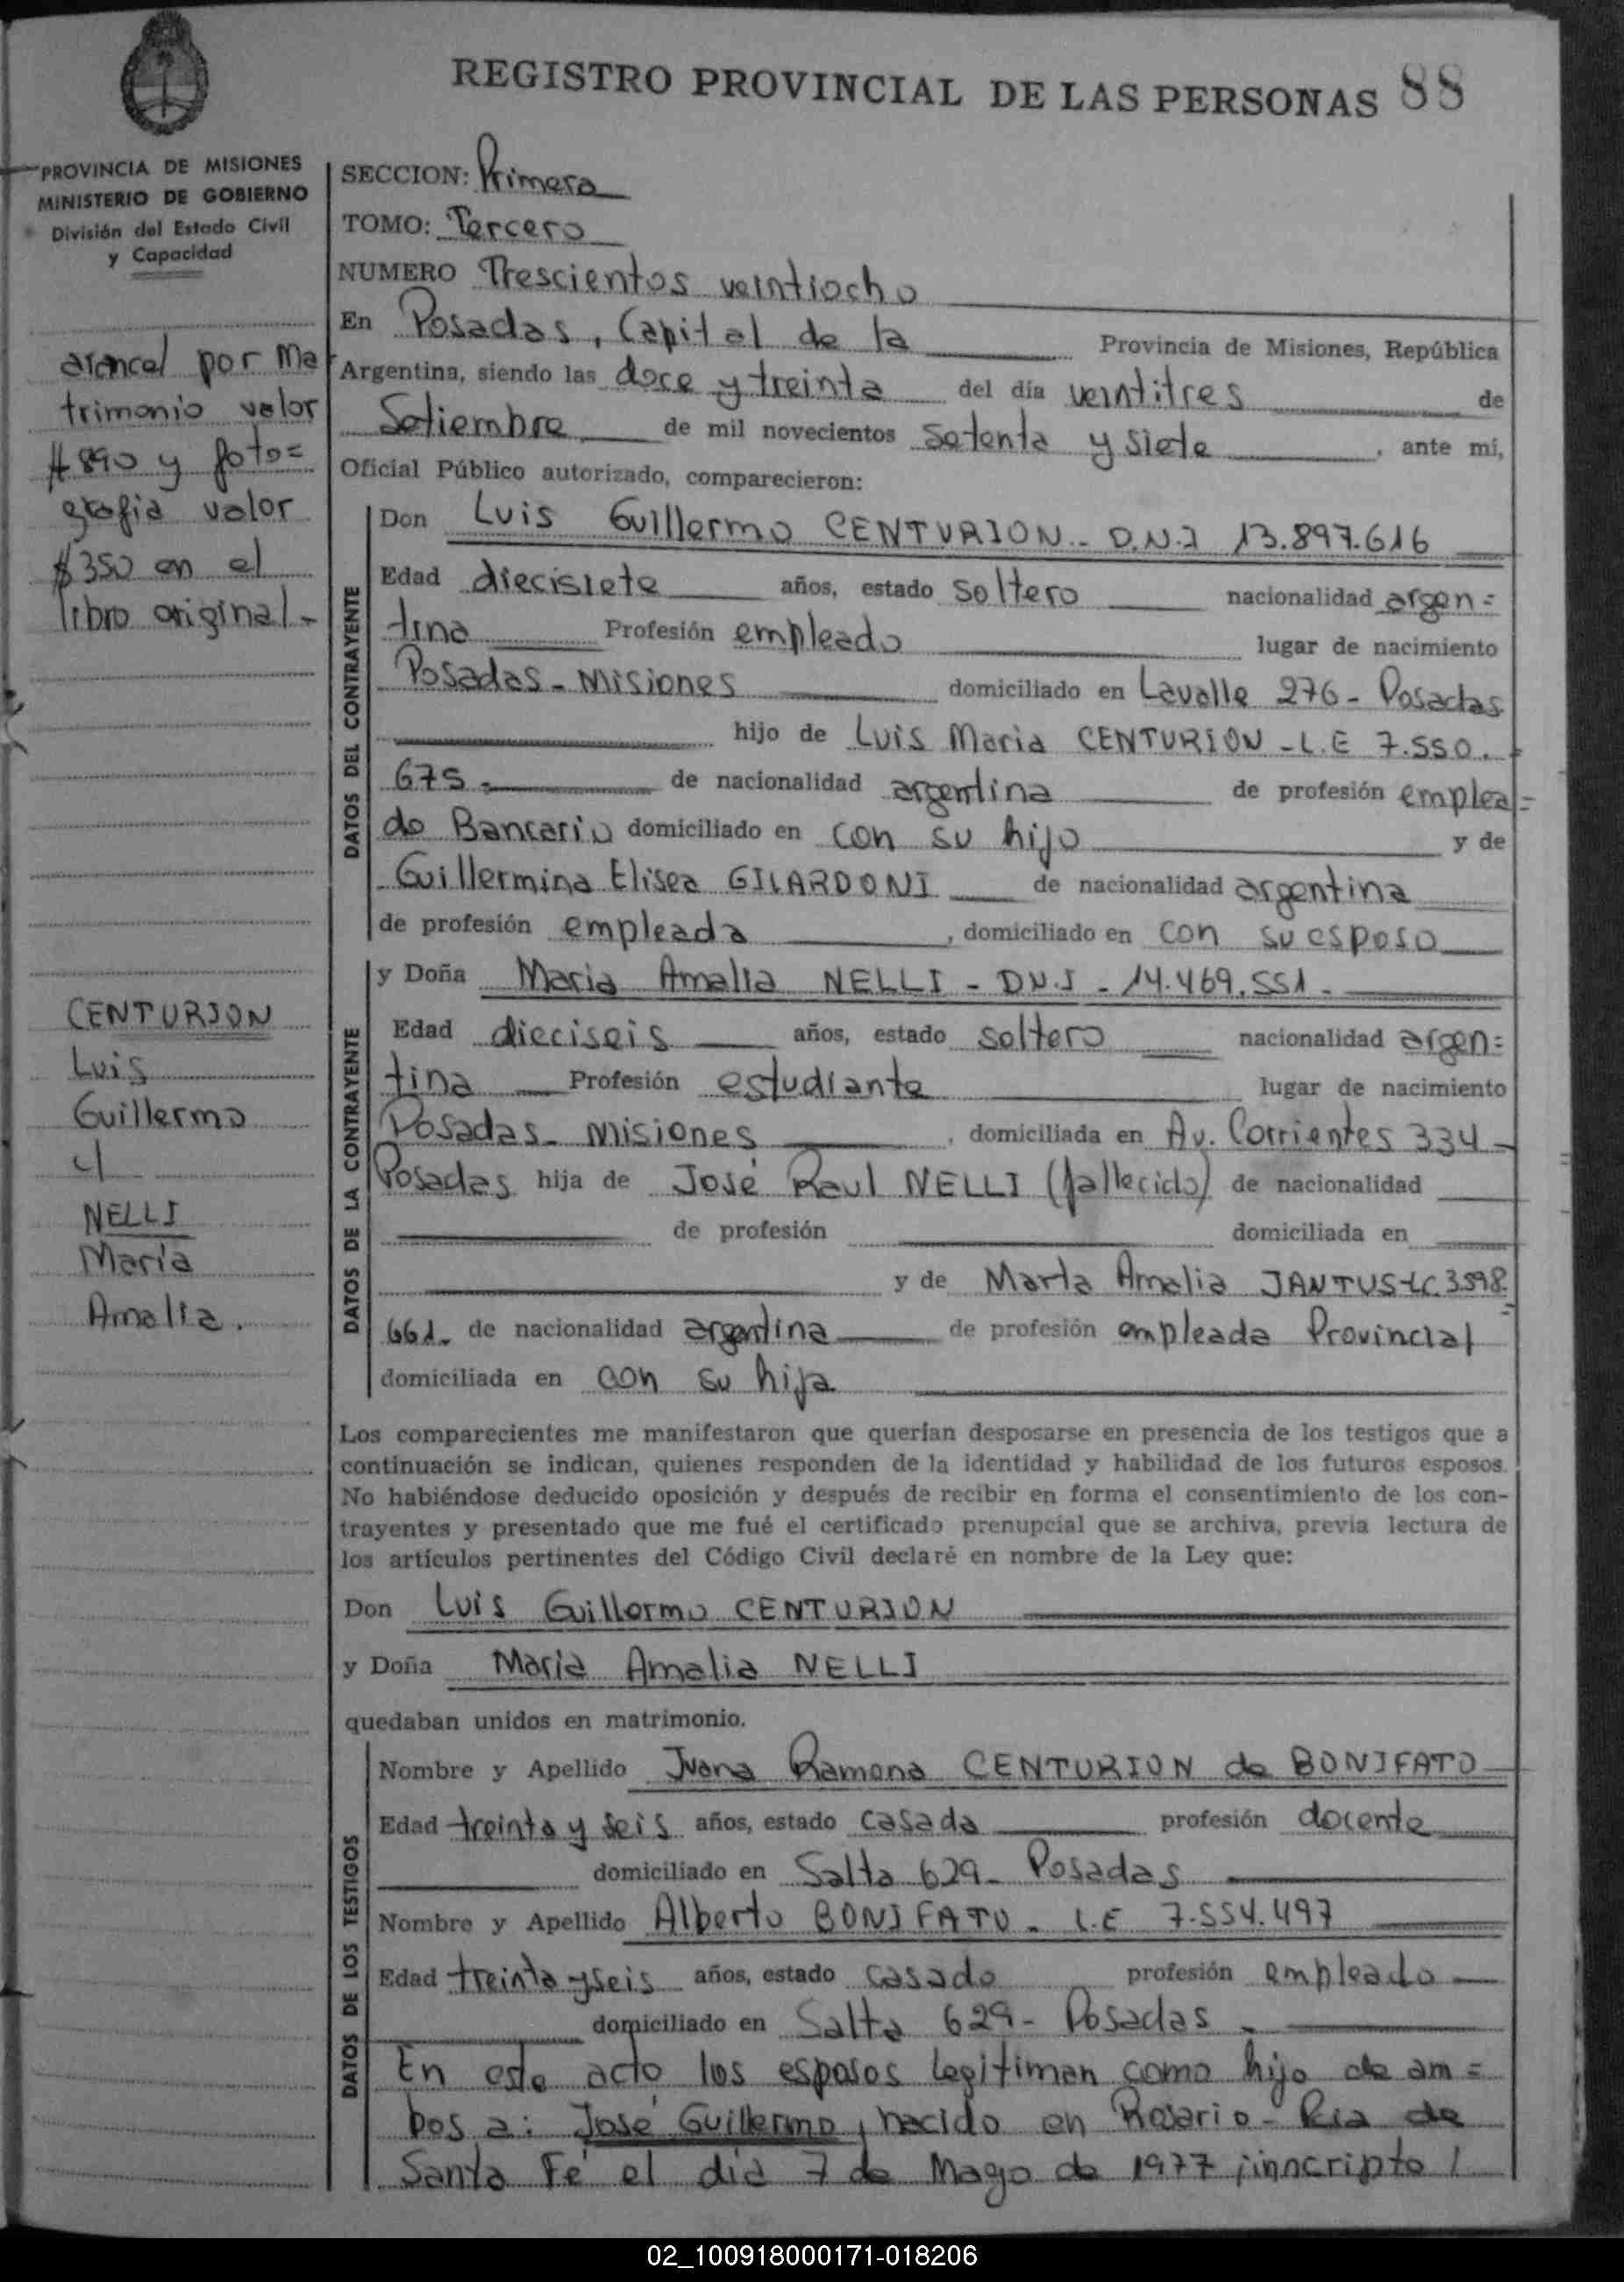 REGISTRO PROVINCIAL DE LAS PERSONAS 88
PROVINCIA DE MISIONES
MINISTERIO DE GOBIERNO
División del Estado Civil
y Capacidad
arancel por Ma
trimonio valor
$890 y foto=
grafia valor
$350 en el
libro original-
CENTURION
Luis
Guillermo
y
NELLI
María
Amalia.
SECCION: Primera
TOMO: Tercero
NUMERO Trescientos veintiocho
En Posadas, Capital de la Provincia de Misiones, República
Argentina, siendo las doce y treinta del día veintitres de
Setiembre de mil novecientos setenta y siete, ante mí,
Oficial Público autorizado, comparecieron:
DATOS DEL CONTRAYENTE
Don Luis Guillermo CENTURION - D.N.I 13.897.616
Edad diecisiete años, estado soltero nacionalidad argen=
tina Profesión empleado lugar de nacimiento
Posadas - Misiones domiciliado en Lavalle 276 - Posadas
hijo de Luis Maria CENTURION - L.E 7.550.
675. de nacionalidad argentina de profesión emplea=
do Bancario domiciliado en con su hijo y de
Guillermina Elisea GILARDONI de nacionalidad argentina
de profesión empleada, domiciliado en con su esposo
DATOS DE LA CONTRAYENTE
y Doña Maria Amalia NELLI - DN.I - 14.469.551.
Edad dieciseis años, estado soltero nacionalidad argen=
tina Profesión estudiante lugar de nacimiento
Posadas - Misiones, domiciliada en Av. Corrientes 334 -
Posadas hija de José Raul NELLI (fallecido) de nacionalidad
de profesión domiciliada en
y de Marta Amalia JANTUS - LC. 3.598.=
661. de nacionalidad argentina de profesión empleada Provincial
domiciliada en con su hija
Los comparecientes me manifestaron que querían desposarse en presencia de los testigos que a
continuación se indican, quienes responden de la identidad y habilidad de los futuros esposos.
No habiéndose deducido oposición y después de recibir en forma el consentimiento de los con-
trayentes y presentado que me fué el certificado prenupcial que se archiva, previa lectura de
los artículos pertinentes del Código Civil declaré en nombre de la Ley que:
Don Luis Guillermo CENTURION
y Doña Maria Amalia NELLI
quedaban unidos en matrimonio.
DATOS DE LOS TESTIGOS
Nombre y Apellido Juana Ramona CENTURION de BONIFATO
Edad treinta y seis años, estado casada profesión docente
domiciliado en Salta 629 - Posadas
Nombre y Apellido Alberto BONIFATO - L.E 7.554.497
Edad treinta y seis años, estado casado profesión empleado
domiciliado en Salta 629 - Posadas -
En este acto los esposos legitiman como hijo de am=
bos a: José Guillermo, nacido en Rosario - Pcia de
Santa Fé el dia 7 de Mayo de 1977; innscripto /
02_100918000171-018206